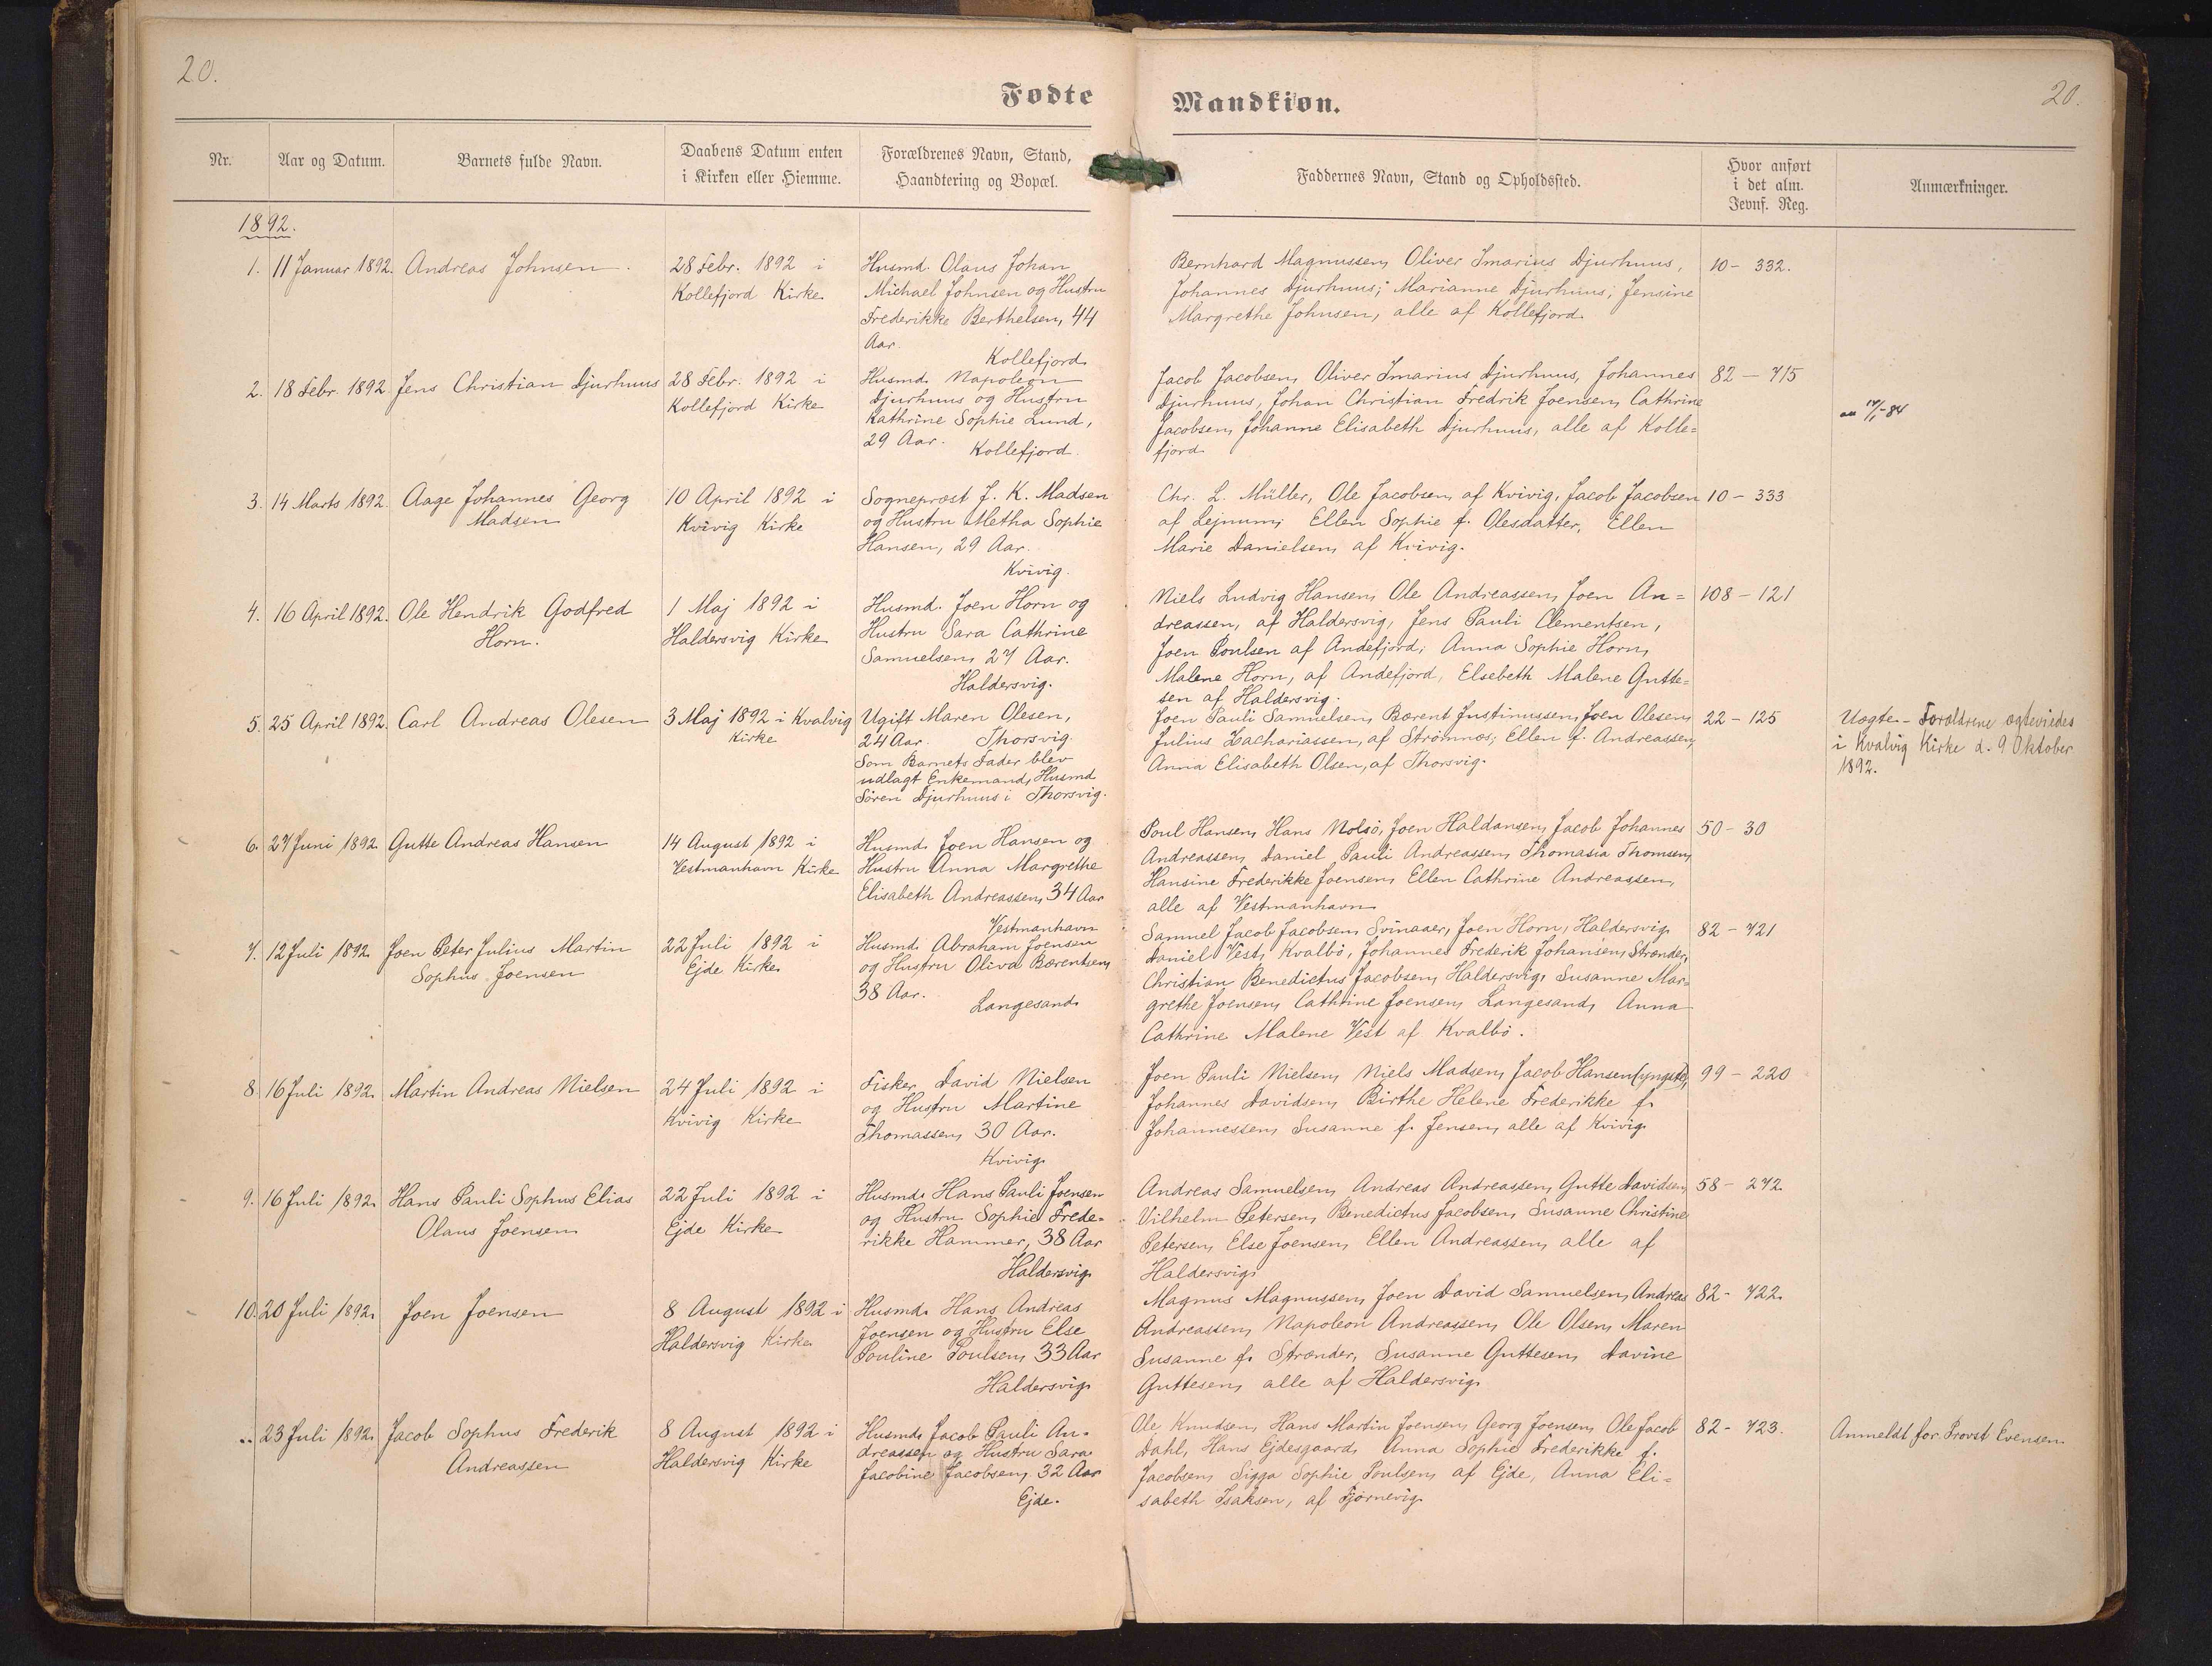 20.
Fødte
Mandkiøn.
20.
Nr.
Aar og Datum.
Barnets fulde Navn.
Daabens Datum enten
i Kirken eller Hiemme.
Forældrenes Navn, Stand,
Haandtering og Bopæl.
Faddernes Navn, Stand og Opholdssted.
Hvor anført
i det alm.
Jevnf. Reg.
Anmærkninger.
1892.
1.
11 Januar 1892.
Andreas Johnsen.
28 Febr. 1892 i
Kollefjord Kirke
Husmd. Olaus Johan
Michael Johnsen og Hustru
Frederikke Berthelsen, 44
Aar.
Kollefjord.
Bernhard Magnussen, Oliver Imarius Djurhuus,
Johannes Djurhuus; Marianne Djurhuus; Jensine
Margrethe Johnsen, alle af Kollefjord.
10 - 332.
2.
18 Febr. 1892.
Jens Christian Djurhuus
28 Febr. 1892 i
Kollefjord Kirke
Husmd. Napoleon
Djurhuus og Hustru
Kathrine Sophie Lund,
29 Aar.
Kollefjord.
Jacob Jacobsen, Oliver Imarius Djurhuus, Johannes
Djurhuus, Johan Christian Fredrik Joensen, Cathrine
Jacobsen, Johanne Elisabeth Djurhuus, alle af Kolle=
fjord.
82 - 715
3.
14 Marts 1892.
Aage Johannes Georg
Madsen
10 April 1892 i
Kvivig Kirke
Sognepræst J. K. Madsen
og Hustru Metha Sophie
Hansen, 29 Aar.
Kvivig.
Chr. L. Müller, Ole Jacobsen, af Kvivig, Jacob Jacobsen
af Lejnum; Ellen Sophie f. Olesdatter, Ellen
Marie Danielsen, af Kvivig.
10 - 333
4.
16 April 1892.
Ole Hendrik Godfred
Horn.
1 Maj 1892 i
Haldersvig Kirke
Husmd. Joen Horn og
Hustru Sara Cathrine
Samuelsen, 27 Aar.
Haldersvig.
Niels Ludvig Hansen, Ole Andreassen, Joen An=
dreassen, af Haldersvig, Jens Pauli Clementsen,
Joen Poulsen af Andefjord; Anna Sophie Horn,
Malene Horn, af Andefjord, Elsebeth Malene Gutte=
sen af Haldersvig.
108 - 121
5.
25 April 1892.
Carl Andreas Olesen
3 Maj 1892 i Kvalvig
Kirke
Ugift Maren Olesen,
24 Aar. Thorsvig.
Som Barnets Fader blev
udlagt Enkemand, Husmd
Søren Djurhuus i Thorsvig.
Joen Pauli Samuelsen, Bærent Justinussen, Joen Olesen,
Julius Zachariassen, af Strømnæs; Ellen f. Andreassen,
Anna Elisabeth Olsen, af Thorsvig.
22 - 125
Uægte - Forældrene ægteviedes
i Kvalvig Kirke d. 9 Oktober
1892.
6.
27 Juni 1892.
Gutte Andreas Hansen
14 August 1892 i
Vestmanhavn Kirke
Husmd. Joen Hansen og
Hustru Anna Margrethe
Elisabeth Andreassen, 34 Aar
Vestmanhavn
Poul Hansen, Hans Nolsö, Joen Haldansen, Jacob Johannes
Andreassen, Daniel Pauli Andreassen, Thomasia Thomsen,
Hansine Frederikke Joensen, Ellen Cathrine Andreassen,
alle af Vestmanhavn
50 - 30
7.
12 Juli 1892.
Joen Peter Julius Martin
Sophus Joensen
22 Juli 1892 i
Ejde Kirke
Husmd. Abraham Joensen
og Hustru Oliva Bærentsen,
38 Aar.
Langesand.
Samuel Jacob Jacobsen, Svinaaer, Joen Horn, Haldersvig,
Daniel Vest, Kvalbö, Johannes Frederik Johansen, Strænder,
Christian Benedictus Jacobsen, Haldersvig, Susanne Mar=
grethe Joensen, Cathrine Joensen, Langesand, Anna
Cathrine Malene Vest af Kvalbö.
82 - 721
8
16 Juli 1892.
Martin Andreas Nielsen
24 Juli 1892 i
Kvivig Kirke
Fisker David Nielsen
og Hustru Martine
Thomassen, 30 Aar.
Kvivig.
Joen Pauli Nielsen, Niels Madsen, Jacob Hansen (yngste),
Johannes Davidsen, Birthe Helene Frederikke f.
Johannessen, Susanne f. Jensen, alle af Kvivig.
99 - 220
9.
16 Juli 1892.
Hans Pauli Sophus Elias
Olaus Joensen
22 Juli 1892 i
Ejde Kirke
Husmd. Hans Pauli Joensen
og Hustru Sophie Frede=
rikke Hammer, 38 Aar
Haldersvig.
Andreas Samuelsen, Andreas Andreassen, Gutte Davidsen,
Vilhelm Petersen, Benedictus Jacobsen, Susanne Christine
Petersen, Else Joensen, Ellen Andreassen, alle af
Haldersvig.
58 - 272.
10.
20 Juli 1892.
Joen Joensen
8 August 1892 i
Haldersvig Kirke
Husmd. Hans Andreas
Joensen og Hustru Else
Pouline Poulsen, 33 Aar
Haldersvig.
Magnus Magnussen, Joen David Samuelsen, Andreas
Andreassen, Napoleon Andreassen, Ole Olsen, Maren
Susanne f. Strænder, Susanne Guttesen, Davine
Guttesen, alle af Haldersvig.
82 - 722.
23 Juli 1892.
Jacob Sophus Frederik
Andreassen
8 August 1892 i
Haldersvig Kirke
Husmd. Jacob Pauli An=
dreassen og Hustru Sara
Jacobine Jacobsen, 32 Aar
Ejde.
Ole Knudsen, Hans Martin Joensen, Georg Joensen, Ole Jacob
Dahl, Hans Ejdesgaard, Anna Sophie Frederikke f.
Jacobsen, Sigga Sophie Poulsen, af Ejde, Anna Eli=
sabeth Isaksen, af Tjörnevig.
82 - 723.
Anmeldt for Provst Evensen.